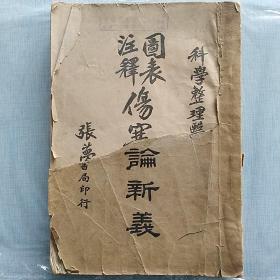 科學整理
圖表
注釋
傷寒論新義
張夢白局印行